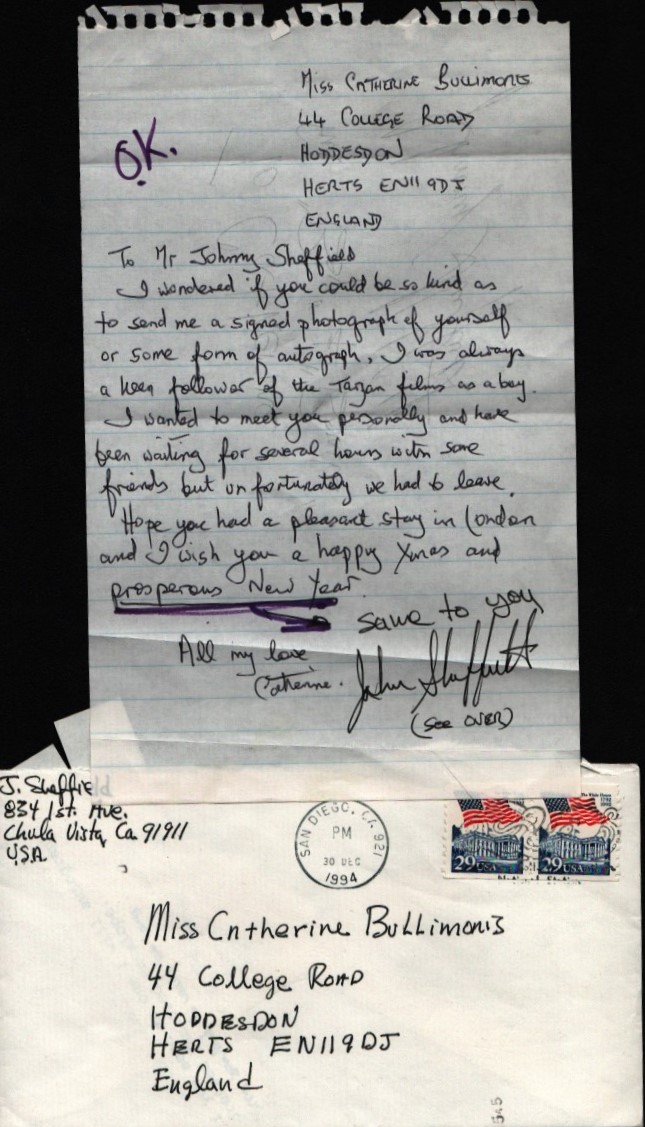 Miss Catherine Bullimonts
44 College Road
O.K.
Hoddesdon
Herts EN11 9DJ
England
To Mr Johnny Sheffield
I wondered if you could be so kind as
to send me a signed photograph of yourself
or some form of autograph, I was always
a keen follower of the Tarzan films as a boy.
I wanted to meet you personally and have
been waiting for several hours with some
friends but unfortunately we had to leave.
Hope you had a pleasant stay in London
and I wish you a happy Xmas and
prosperous New Year.
same to you
All my love
Catherine.
John Sheffield
(see OVER)
J. Sheffie
834 1st. Ave.
Chula Vista, Ca. 91911
U.S.A.
SAN DIEGO, CA. 921
PM
30 DEC
1994
The White House
1792
1992
29 USA
29 USA
Miss Catherine Bullimonis
44 College Road
Hoddesdon
Herts EN11 9DJ
England
545